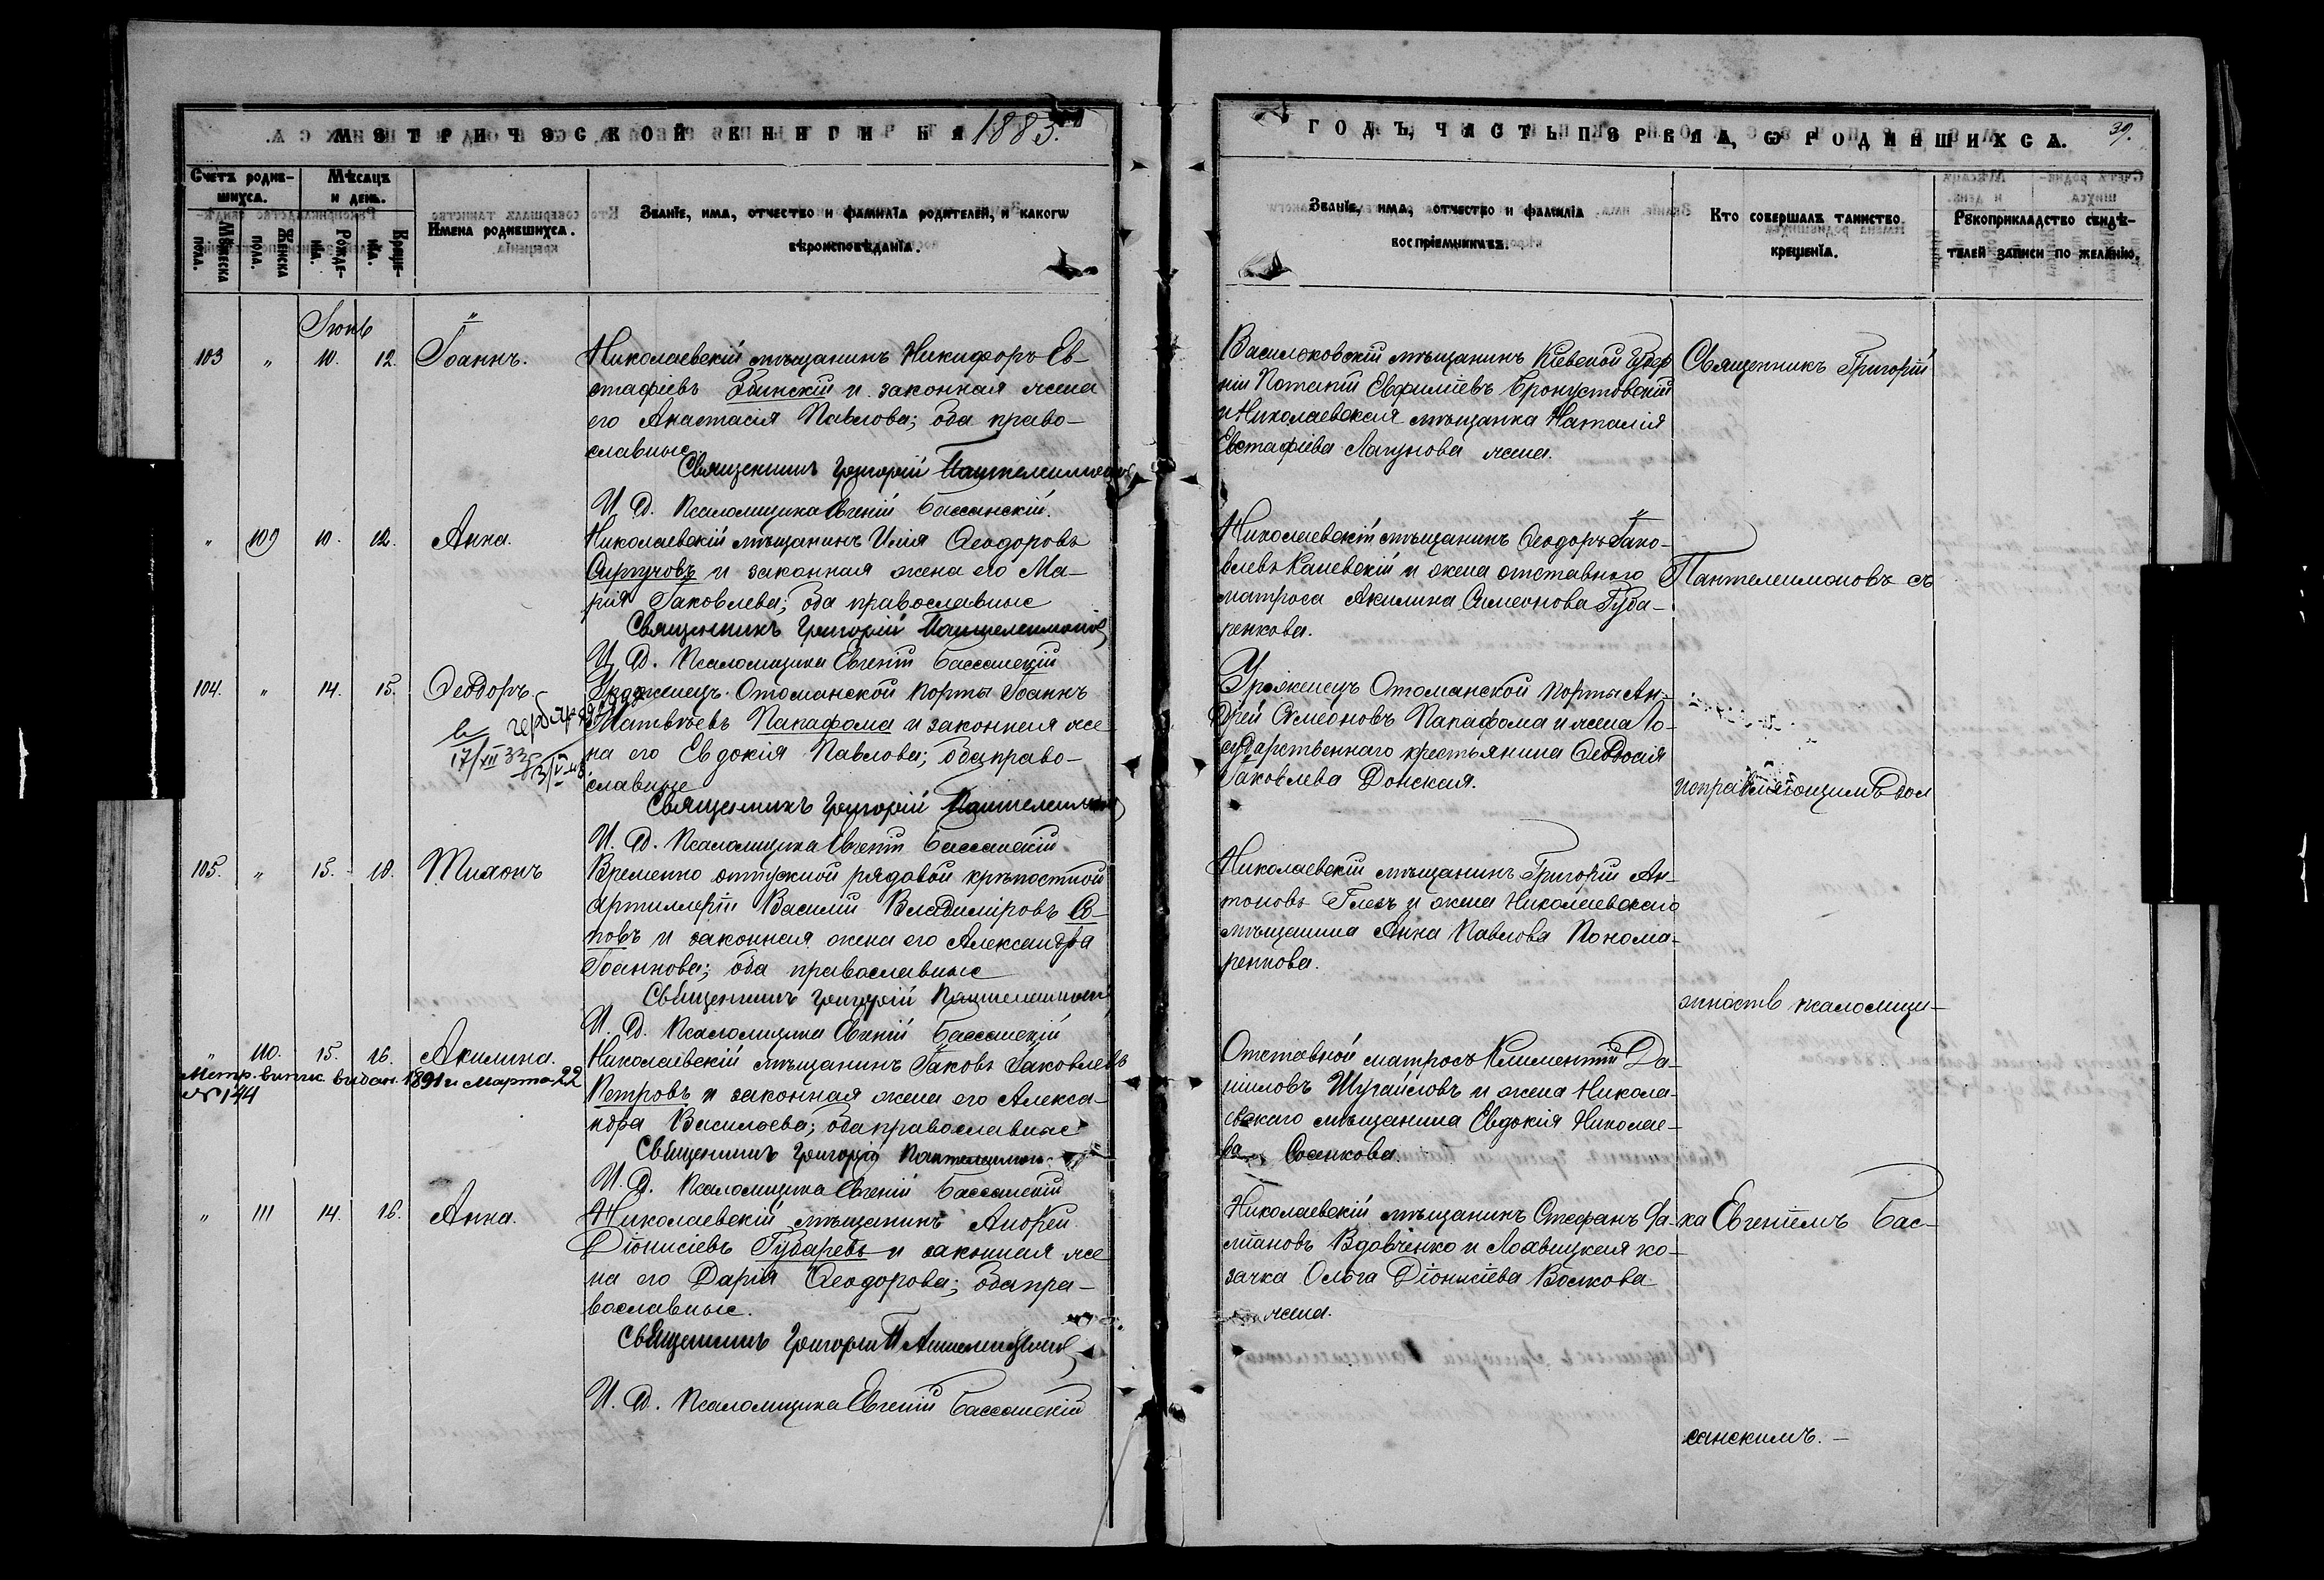 МЕТРИЧЕСКОЙ КНИГИ НА 1883
Счетъ родив-
шихся.
Мѣсяцъ
и день.
Мужеска
пола.
Женска
пола.
Рожде-
нія.
Креще-
нія.
Имена родившихся.
Званіе, имя, отчество и фамилія родителей, и какогѡ
вѣроисповѣданія.
Іюнь
103 " 10. 12. Іоаннъ.
Николаевскій мѣщанинъ Никифоръ Ев-
стафіевъ и законная жена
его Анастасія Павлова; оба право-
славные
Священникъ Григорій Пантелеимоновъ
И. Д. Псаломщика Евгеній Бассанскій.
" 109 10. 12. Анна.
Николаевскій мѣщанинъ Илія Ѳеодоровъ
и законная жена его Ма-
рія Іаковлева; оба православные
Священникъ Григорій Пантелеимоновъ
И. Д. Псаломщика Евгеній Бассанскій
104. " 14. 15. Ѳеодоръ
17/XII 33
Уроженецъ Отоманской Порты Іоаннъ
Матвѣевъ Папафома и законная же
на его Евдокія Павлова; оба право-
славные
Священникъ Григорій Пантелеимоновъ
И. Д. Псаломщика Евгеній Бассанскій
105. " 15. 18. Тихонъ
Временно отпускной рядовой крѣпостной
артиллеріи Василій Владиміровъ По-
повъ и законная жена его Александра
Іоаннова; оба православные
Священникъ Григорій Пантелеимоновъ
И. Д. Псаломщика Евгеній Бассанскій
" 110. 15. 16. Акилина.
Метр. выпис выдан. 1891 г. Марта 22
№ 144
Николаевскій мѣщанинъ Іаковъ Іаковлевъ
Петровъ и законная жена его Алекса-
ндра Васильева; оба православные
Священникъ Григорій Пантелеимон
И. Д. Псаломщика Евгеній Бассанскій
" 111 14. 16. Анна.
Николаевскій мѣщанинъ Андрей
Діонисіевъ Губаревъ и законная же
на его Дарія Ѳеодорова; оба пра-
вославные.
Священникъ Григорій Пантелеимоновъ
И. Д. Псаломщика Евгеній Бассанскій
ГОДЪ, ЧАСТЬ ПЕРВАЯ, Ѡ РОДИВШИХСЯ. 39.
Званіе, имя, отчество и фамилія
воспріемниковъ.
Кто совершалъ таинство
крещенія.
Рукоприкладство свидѣ-
телей записи по желанію.
Васильковскій мѣщанинъ Кіевской Губер
ніи Потапій Евфиміевъ
и Николаевская мѣщанка Наталія
Евстафіева Лагунова жена.
Николаевскій мѣщанинъ Ѳеодоръ Іако-
влевъ Каневскій и жена отставного
матроса Акилина Симеонова Губа-
ренкова.
Уроженецъ Отоманской Порты Ан-
дрей Симеоновъ Папафома и жена Го-
сударственнаго крестьянина Ѳеодосія
Іаковлева Донская.
Николаевскій мѣщанинъ Григорій Ан-
тоновъ и жена Николаевскаго
мѣщанина Анна Павлова Понома-
ренкова.
Отставной матросъ Климентій Да-
ніиловъ Шугайловъ и жена Никола-
евскаго мѣщанина Евдокія Николае-
ва
Николаевскій мѣщанинъ Стефанъ Фа-
Вдовченко и Лохвицкая ко-
зачка Ольга Діонисіева Волкова
жена.
Священникъ Григорій
Пантелеимоновъ съ
исправляющимъ дол
жность псаломщи-
ка Евгеніемъ Бас-
санскимъ.